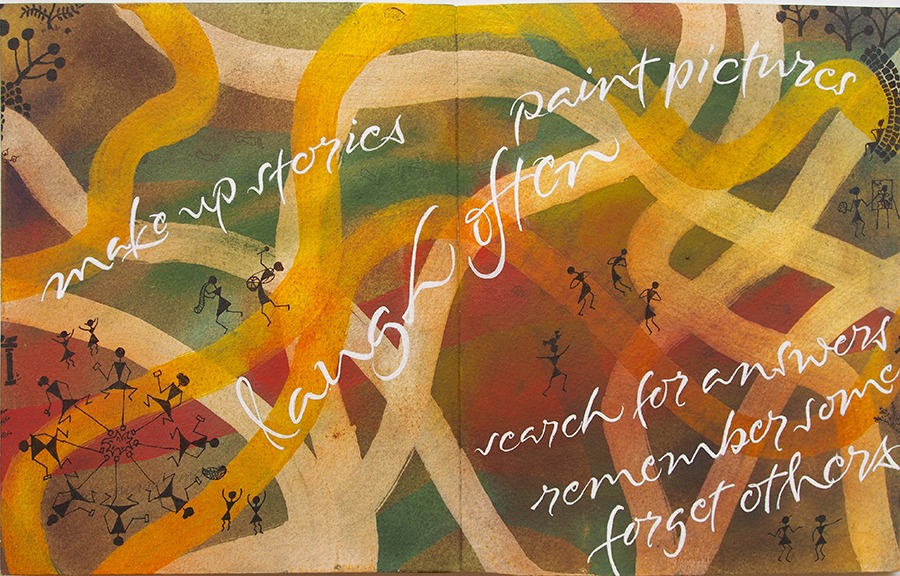 make up stories
paint pictures
laugh often
search for answers
remember some
forget others